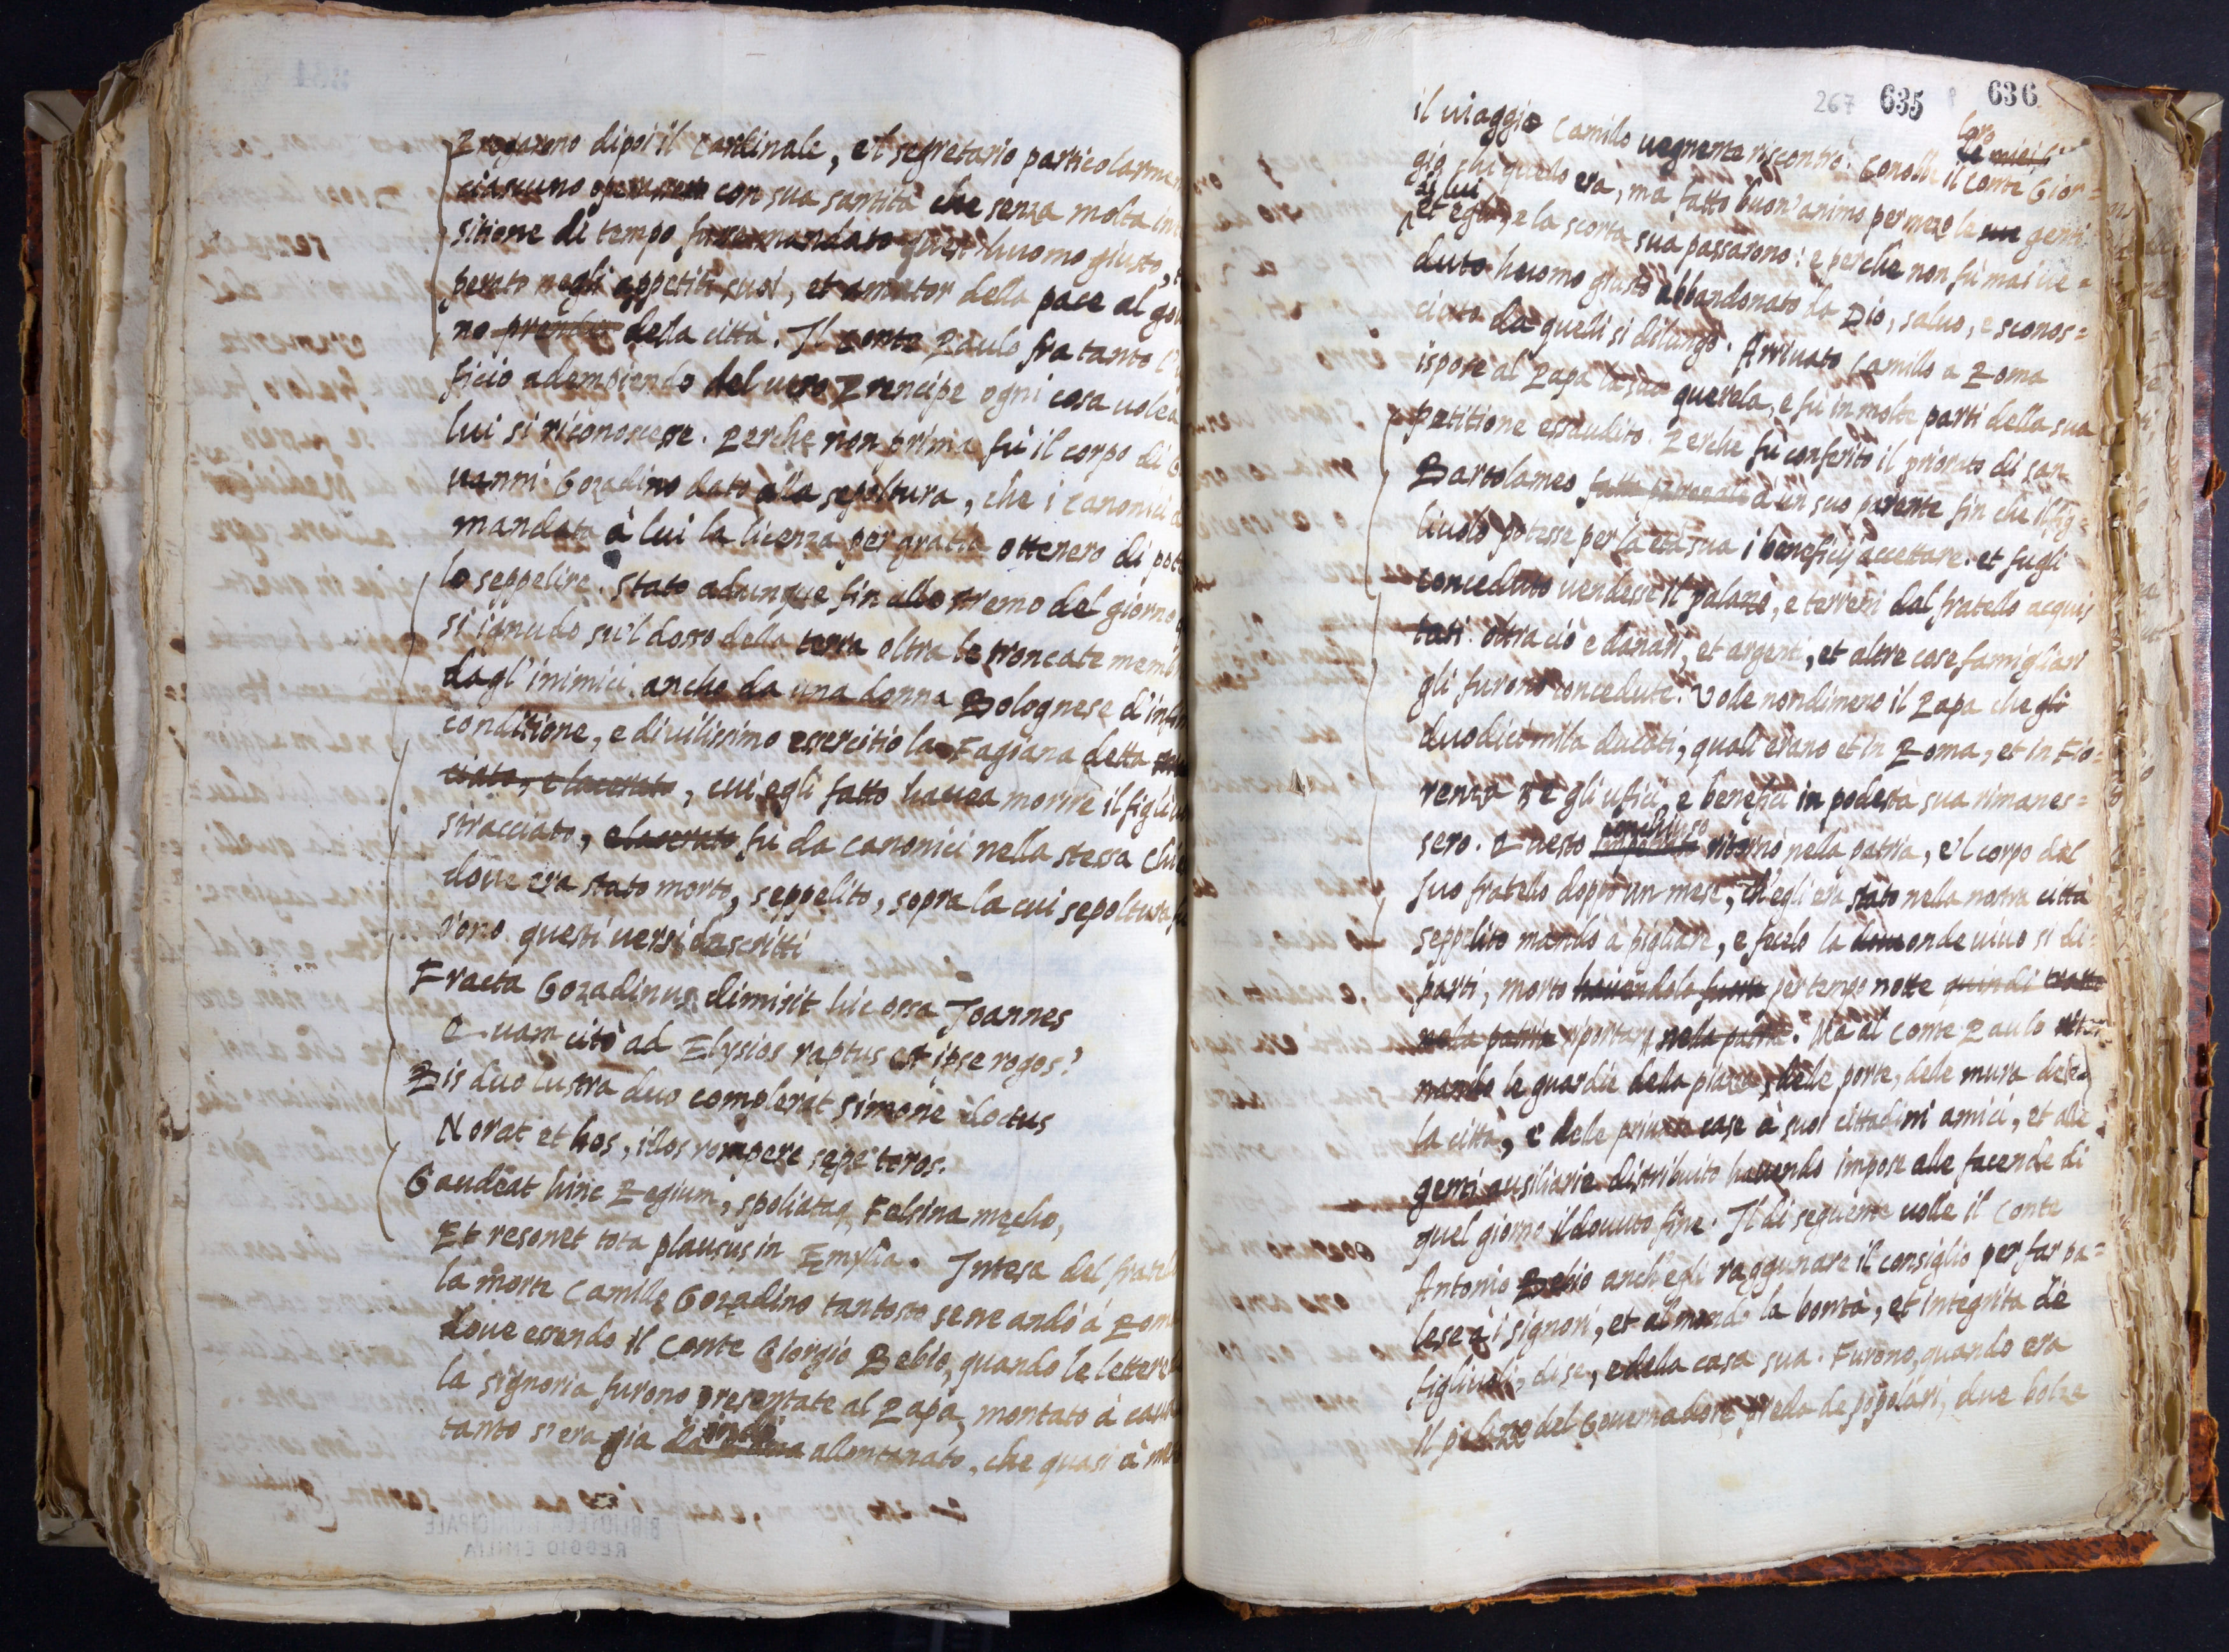 Pregarono dipoi il Cardinale, e'l segretario particolarme
ciascuno con sua santità che senza molta in
sitione di tempo fusse mandato quest' huomo giusto,
perato negli appetiti suoi, et amator della pace al go
no prender della città. Il Conte Paulo fra tanto l'
ficio adempiendo del uero Prencipe ogni cosa uolea
lui si riconoscesse. Perche non prima fù il corpo di
uanni Gozadino dato alla sepoltura, che i Canonici
mandato à lui la licenza per gratia ottenero di pot
lo seppelire. Stato adunque fin allo stremo del giorno
si ignudo su'l dosso della terra oltra le troncate memb
dagl' inimici, anche da una donna Bolognese d' inf
conditione, e di uilissimo essercitio la Fagiana detta
ciato, e lacerato, cui egli fatto hauea morire il figli
stracciato, e lacerato fù da canonici nella stessa chi
doue era stato morto, seppelito, sopra la cui sepoltura
rono questi uersi descritti
Fracta Gozadinus dimisit hic ossa Joannes
Quam citò ad Elysios raptus et ipse rogos?
Bis duo lustra duo complerat simone doctus
Norat et hos, illos rompere sępe toros.
Gaudeat hinc Regium, spoliataq Felsina męcho,
Et resonet tota plausus in Emylia. Intesa del fratel
la morte Camillo Gozadino tantosto se ne andò à Rom
doue essendo il Conte Giorgio Bebio, quando le lettere
la signoria furono presentate al Papa, montato à cau
tanto s' era gia indi allontanato, che quasi à me
267 635 636
il uiaggio Camillo uegnente riscontrò. Conobbe il conte Gior=
loro
gio chi quello era, ma fatto buon' animo per mezo le sue genti
di lui
et egli, e la scorta sua passarono: e perche non fù mai ue=
duto huomo giusto abbandonato da Dio, saluo, e sconos=
ciuto da quelli si dilungò. Arriuato Camillo a Roma
ispose al Papa la sua querela, e fù in molte parti della sua
petitione essaudito. Perche fù conferito il priorato di san
Bartolameo à un suo parente fin che il fig=
liuolo potesse per la età sua i beneficij accettare. et fugli
conceduto uendesse il palazo, e terreni dal fratello acquis
tati. oltra ciò e danari, et argenti, et altre cose famigliari
gli furono concedute. Vole nondimeno il Papa che gli
duodici mila ducati, quali erano et in Roma, et in Fio=
renza e gli ufici, e benefici in podestà sua rimanes=
sero. Questo conchiuso ritornò nella patria, e'l corpo del
suo fratello doppò un mese, ch' egli era stato nella nostra città
seppelito mandò à pigliare, e fecelo la doue onde uiuo si di=
parti, morto hauendolo per tempo notte quindi tratto
nella patria riportar nella patria. Ma al Conte Paulo
mando le guardie della piazza, delle porte, dele mura del
la città, e dele priuate case à suoi cittadini amici, et alle
genti ausiliarie distribuito hauendo impose alle facende di
quel giorno il douuto fine. Il di seguente uolle il Conte
Antonio Bebio anch' egli raggunare il consiglio per far pa=
lese à i signori, et al mondo la bontà, et integrita de
figliuoli, di se, e della casa sua. Furono, quando era
il palazzo del Gouernadore preda de popolari, due bolze
BIBLIOTECA MUNICIPALE
REGGIO EMILIA